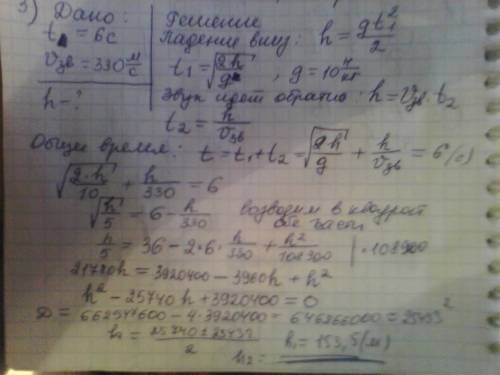 3) Дано:
t = 6с
Vзв = 330 м/с
h - ?
Решение
Падение вниз: h = gt₁²/2
t₁ = √(2h/g) , g = 10 Н/кг
Звук идет обратно: h = Vзв · t₂
t₂ = h/Vзв
Общее время: t = t₁ + t₂ = √(2h/g) + h/Vзв = 6 (с)
√(2·h/10) + h/330 = 6
√(h/5) = 6 - h/330 возводим в квадрат
обе части
h/5 = 36 - 2·6·h/330 + h²/108900 | · 108900
21780h = 3920400 - 3960h + h²
h² - 25740h + 3920400 = 0
D = 662547600 - 4·3920400 = 646866000 = 25433²
h₁ = (25740 ± 25433)/2 h₁ = 153,5 (м)
h₂ =